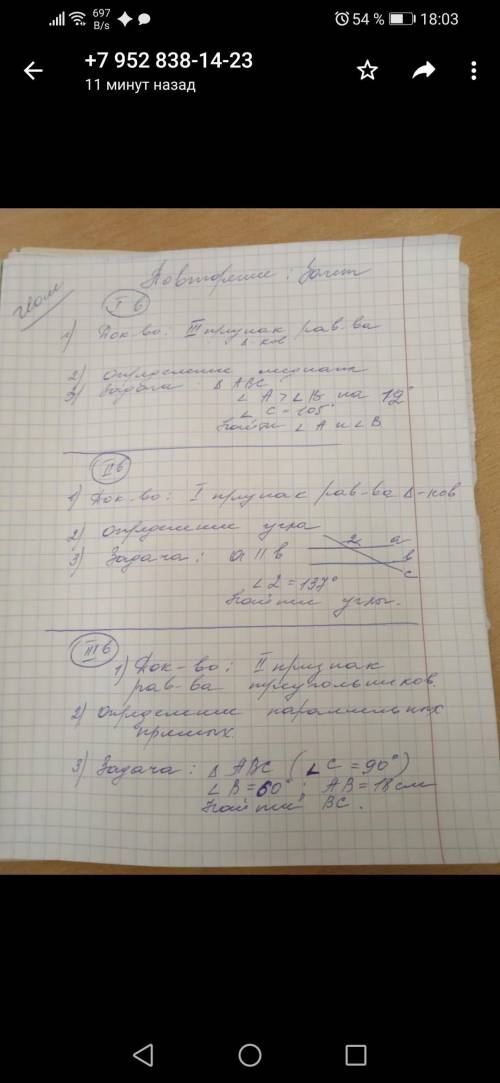 697 B/s 54 % 18:03
+7 952 838-14-23
11 минут назад
геом
Повторение: Зачет
I в
1) Док-во: III признак рав-ва
Δ-ков
2) Определение медианы
3) Задача: Δ ABC
∠ A > ∠ B на 12°
∠ C = 105°
Найти ∠ A и ∠ B
II в
1) Док-во: I признак рав-ва Δ-ков
2) Определение угла
3) Задача: a || b
2 a
b
c
∠2 = 137°
Найти углы.
III в
1) Док-во: II признак
рав-ва треугольников.
2) Определение параллельных
прямых.
3) Задача: Δ ABC (∠ C = 90°)
∠ B = 60°; AB = 18 см
Найти BC.